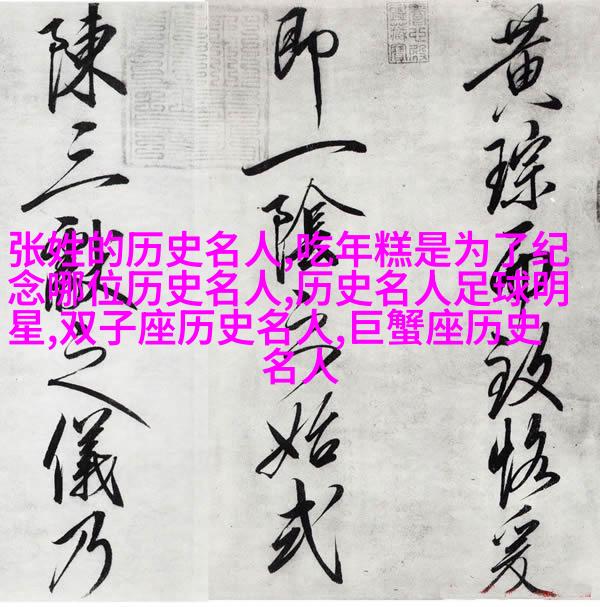 黄琮而致恪爰
即一陰始式
陳三獻之儀乃
张姓的历史名人,吃年糕是为了纪
念哪位历史名人,历史名人足球明
星,双子座历史名人,巨蟹座历史
名人